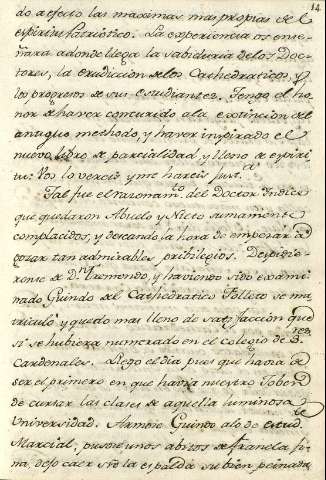 14
do a efecto las maximas mas propias del
espiritu Patriotico. La experiencia os ense-
ñara adonde llega la sabiduria de los Doc-
tores, la erudicion de los Cathedraticos, y
los progresos de sus estudiantes. Tengo el ho-
nor de haver concurido a la extincion del
antiguo methodo, y haver inspirado el
nuevo, libre de parcialidad, y lleno de espiri-
tu: Vos lo vereis y me hareis just.ª
Tal fue el razonam.to del Doctor Indice
que quedaron Abuelo y Nieto sumamente
complacidos, y deseando la hora de empezar a
gozar tan admirables privilegios. Despidie-
ronse de D.n Tremondo, y haviendo sido exami-
nado Guindo del Cathedratico Folleto se ma-
triculó y quedó mas lleno de satisfacción que
si se hubiera numerado en el colegio de S.res
Cardenales. Llego el dia pues que havia de
ser el primero en que havia nuestro Joben
de cursar las clases de aquella luminosa
Universidad. Armose Guindo a lo de
Marcial, pusose unos abitos de franela fi-
na, dejo caer sre la espalda su bien peinada